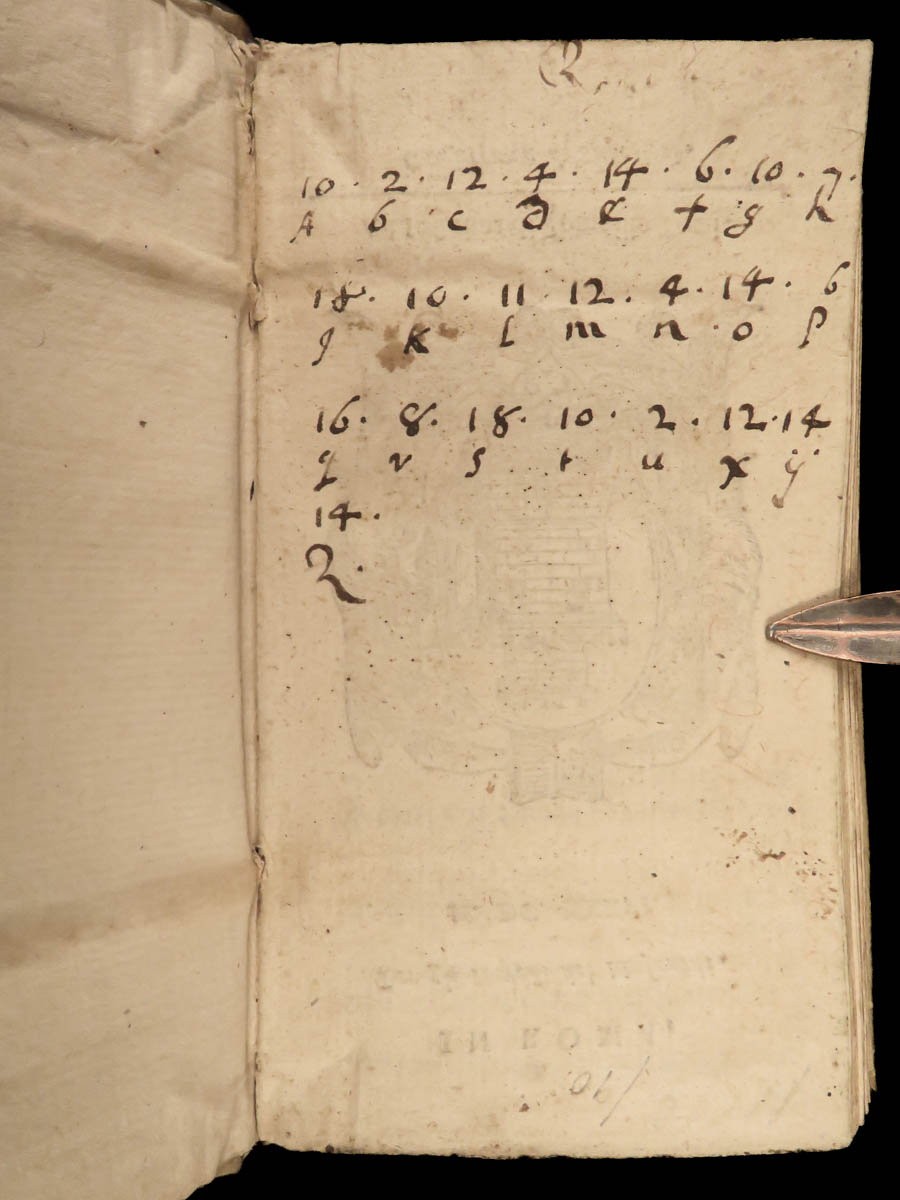 R
10 . 2 . 12 . 4 . 14 . 6 . 10 . 7 .
A b c d e f g h
18 . 10 . 11 12 . 4 . 14 . 6
J K l m n o p
16 . 8 . 18 . 10 . 2 . 12 . 14
q r s t u x y
14 .
Z .
190